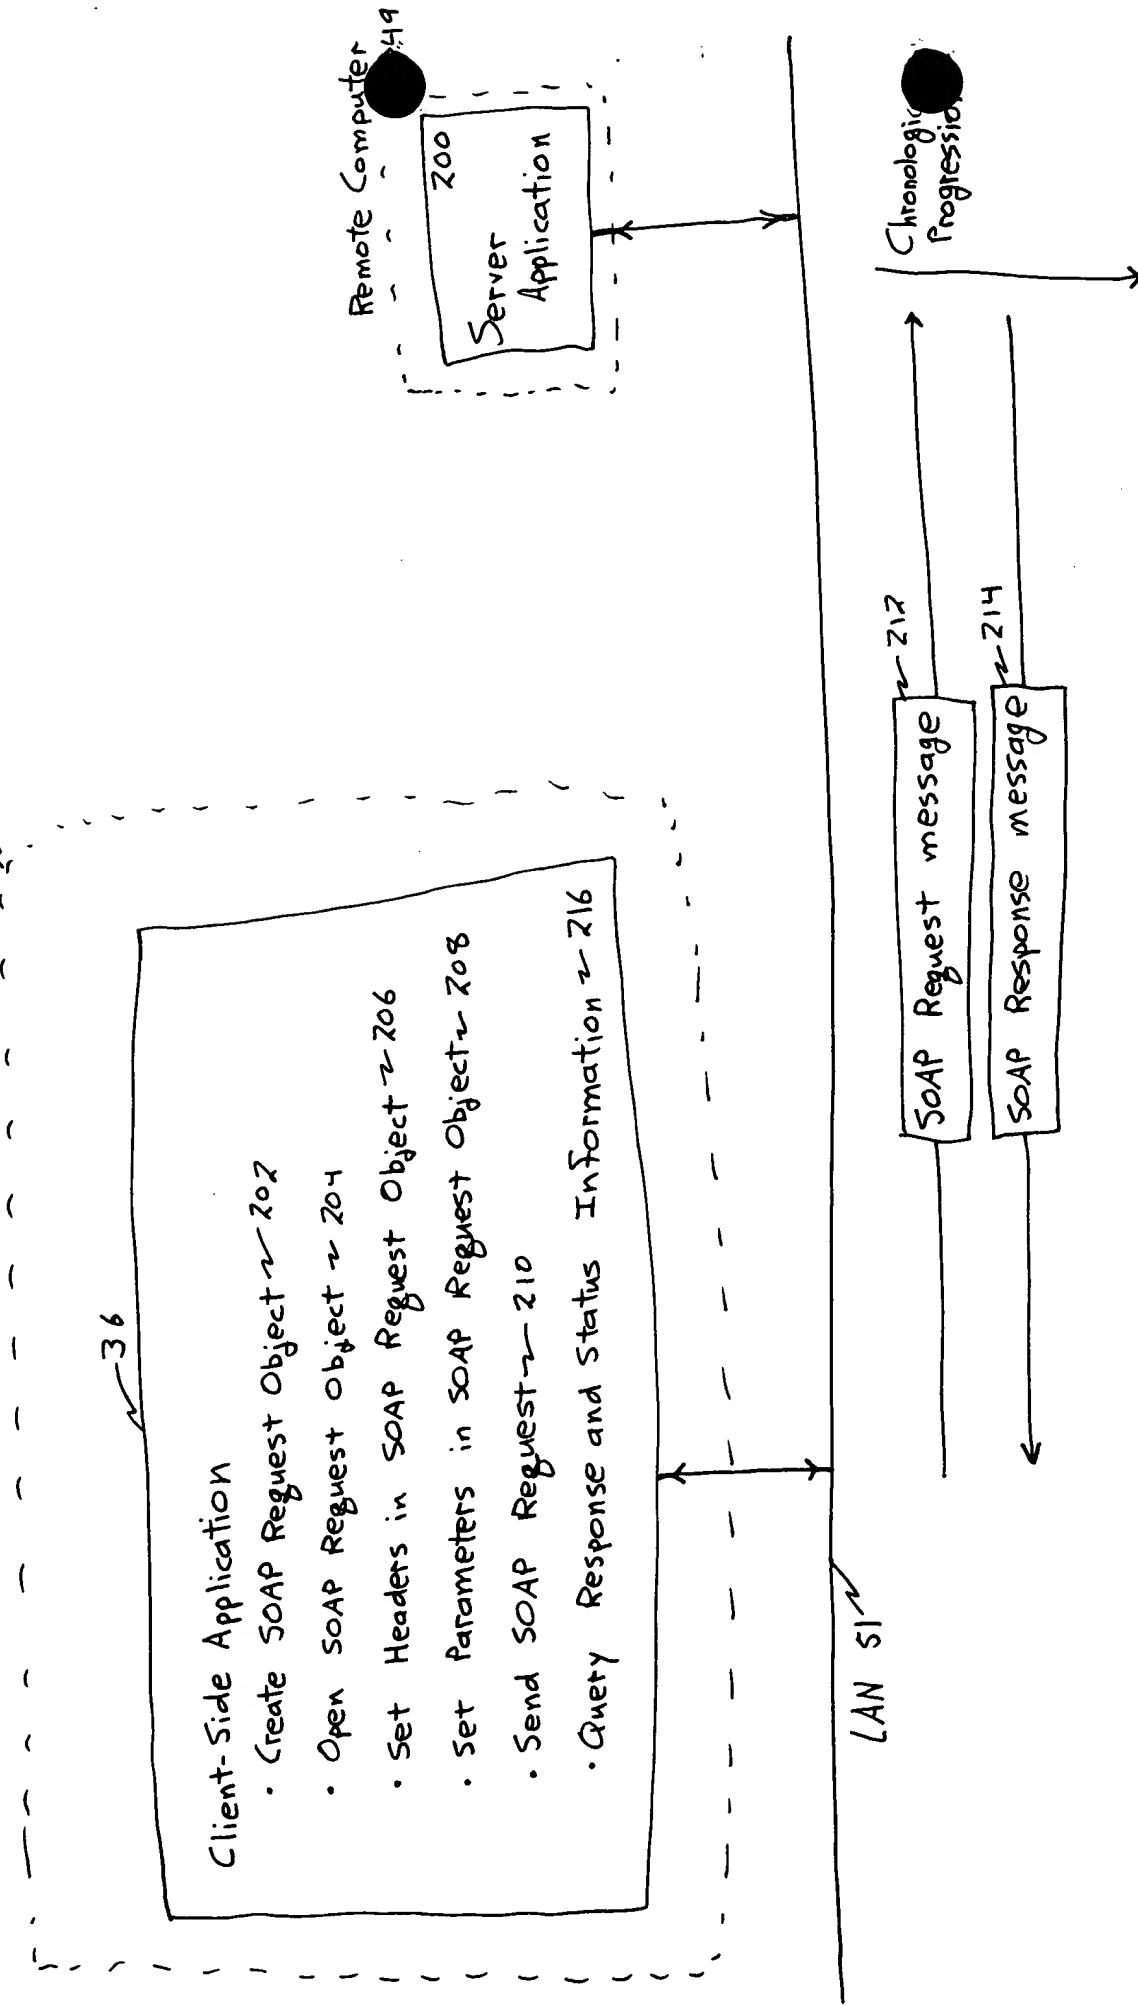 36
Client-Side Application
· Create SOAP Request Object ~ 202
· Open SOAP Request Object ~ 204
· Set Headers in SOAP Request Object ~ 206
· Set Parameters in SOAP Request Object ~ 208
· Send SOAP Request ~ 210
· Query Response and Status Information ~ 216
Remote Computer
49
200
Server
Application
LAN 51
SOAP Request message
212
SOAP Response message
214
Chronologic
Progressio